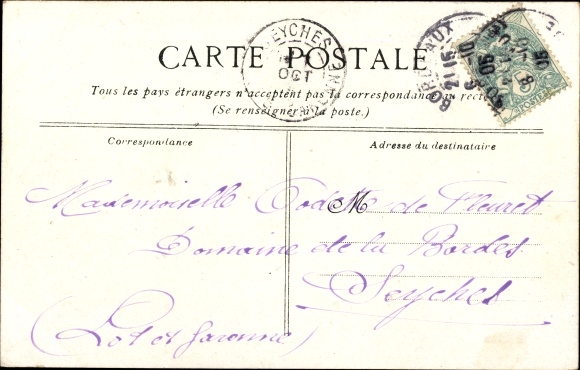 SEYCHES
OCT
BORDEAUX
21 15
6 -10
05
CARTE POSTALE
Tous les pays étrangers n'acceptent pas la correspondance au recto
(Se renseigner à la poste.)
Correspondance
Adresse du destinataire
M
Mademoiselle Odette de Fleuret
Domaine de la Bordes
Seyches
(Lot et Garonne)